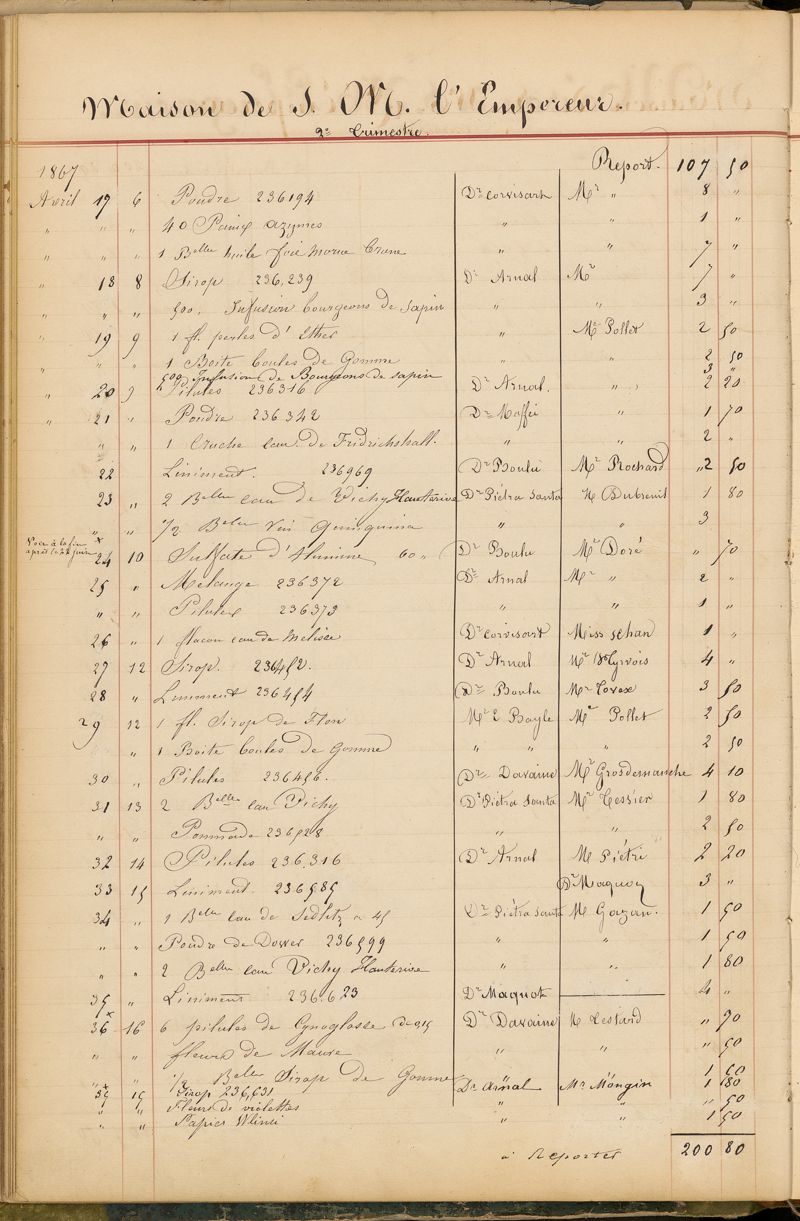 Maison de S. M. l'Empereur.
2e Trimestre.
1867 Report. 107 50
Avril 17 6 Poudre 236194 Dr Corvisart Mr " 8 "
" " " 40 Pains azymes " 1 "
" " " 1 Belle huile foie morue brune " " 7 "
" 18 8 Sirop 236,239 Dr Arnal Mr 7 "
" " " 500, Infusion bourgeons de sapin " " 3 "
" 19 9 1 fl. perles d'Ether " Mr Pollet 2 50
" " " 1 Boite boules de Gomme " " 2 50
500 Infusion de Bourgeons de sapin 3 "
" 20 9 Pilules 236316 Dr Arnal. " 2 20
" 21 " Poudre 236342 Dr Maffei " 1 70
" " 1 Cruche eau de Fridrichshall. " " 2 "
22 Liniment. 236969 Dr Boulu Mr Rochard " 2 50
23 " 2 Belles eau de Vichy Hauterive Dr Piétra Santa M Dubreuil 1 80
" " 1/2 Belle Vin Quinquina " " 3
Voir à la fin après le 22 juin
x 24 10 Sulfate d'Alumine 60 " Dr Boulu Mr Doré " 70
25 " Mélange 236372 Dr Arnal Mr " 2 "
" " Pilules 236373 " " 1 "
26 " 1 flacon eau de Mélisse Dr Corvisart Miss 1 "
27 12 Sirop. 236452. Dr Arnal Mr 4 "
28 " Liniment 236454 Dr Boulu Mr 3 50
29 12 1 fl. Sirop de Flon Mr E Bayle Mr Pollet 2 50
" 1 Boite boules de Gomme " " " 2 50
30 " Pilules 236456. Dr Davaine Mr Grosdemanche 4 10
31 13 2 Belles eau Vichy Dr Piétra Santa Mr Tessier 1 80
" " Pommade 236528 " " 2 50
32 14 Pilules 236.316 Dr Arnal M Piétri 2 20
33 15 Liniment 236585 Dr Maquoy 3 "
34 " 1 Belle eau de Sedlitz à 45 Dr Piétra Santa M Gazan. 1 50
" " Poudre de Dower 236599 " " 1 50
" " 2 Belles eau Vichy Hauterive " " 1 80
35 " Liniment 236.623 Dr Maquot 4 "
x 36 16 6 pilules de Cynoglosse de 0,15 Dr Davaine M Lestard " 90
" " fleurs de Mauve " " " 50
" " 1/2 Belle Sirop de Gomme 1 60
x 15 Sirop 236,631 Dr Arnal Mr Mongin 1 80
" " Fleurs de violettes " " 50
" " Papier Wlinsi " " 1 50
à Reporter 200 80